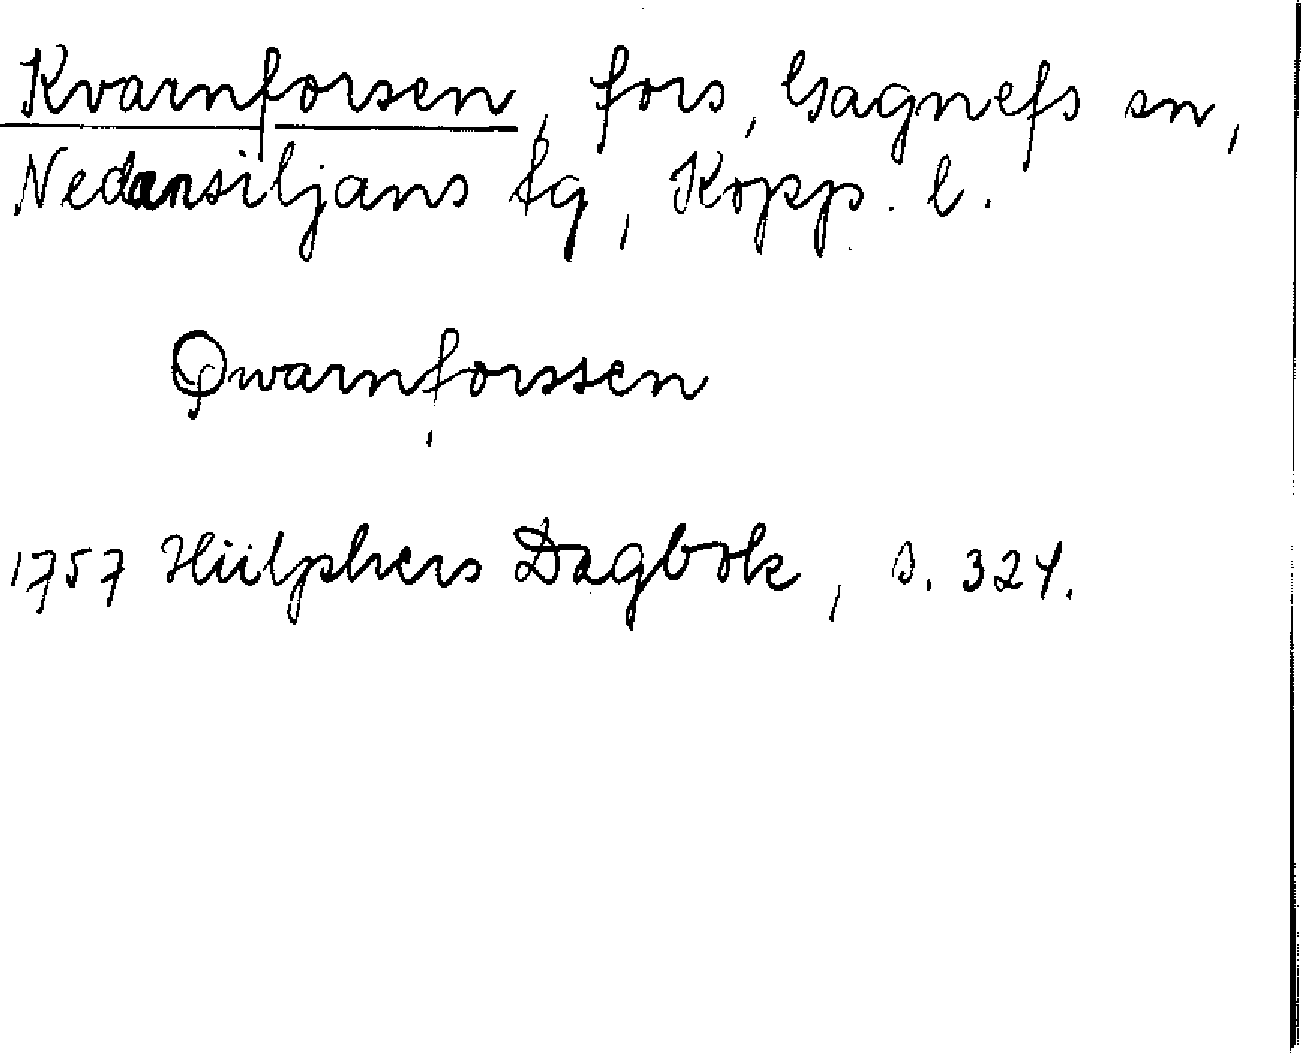 Kvarnforsen, fors, Gagnefs sn,
Nedansiljans tg, Kopp. l.
Qwarnforssen
1757 Hülphers Dagbok, s. 324.